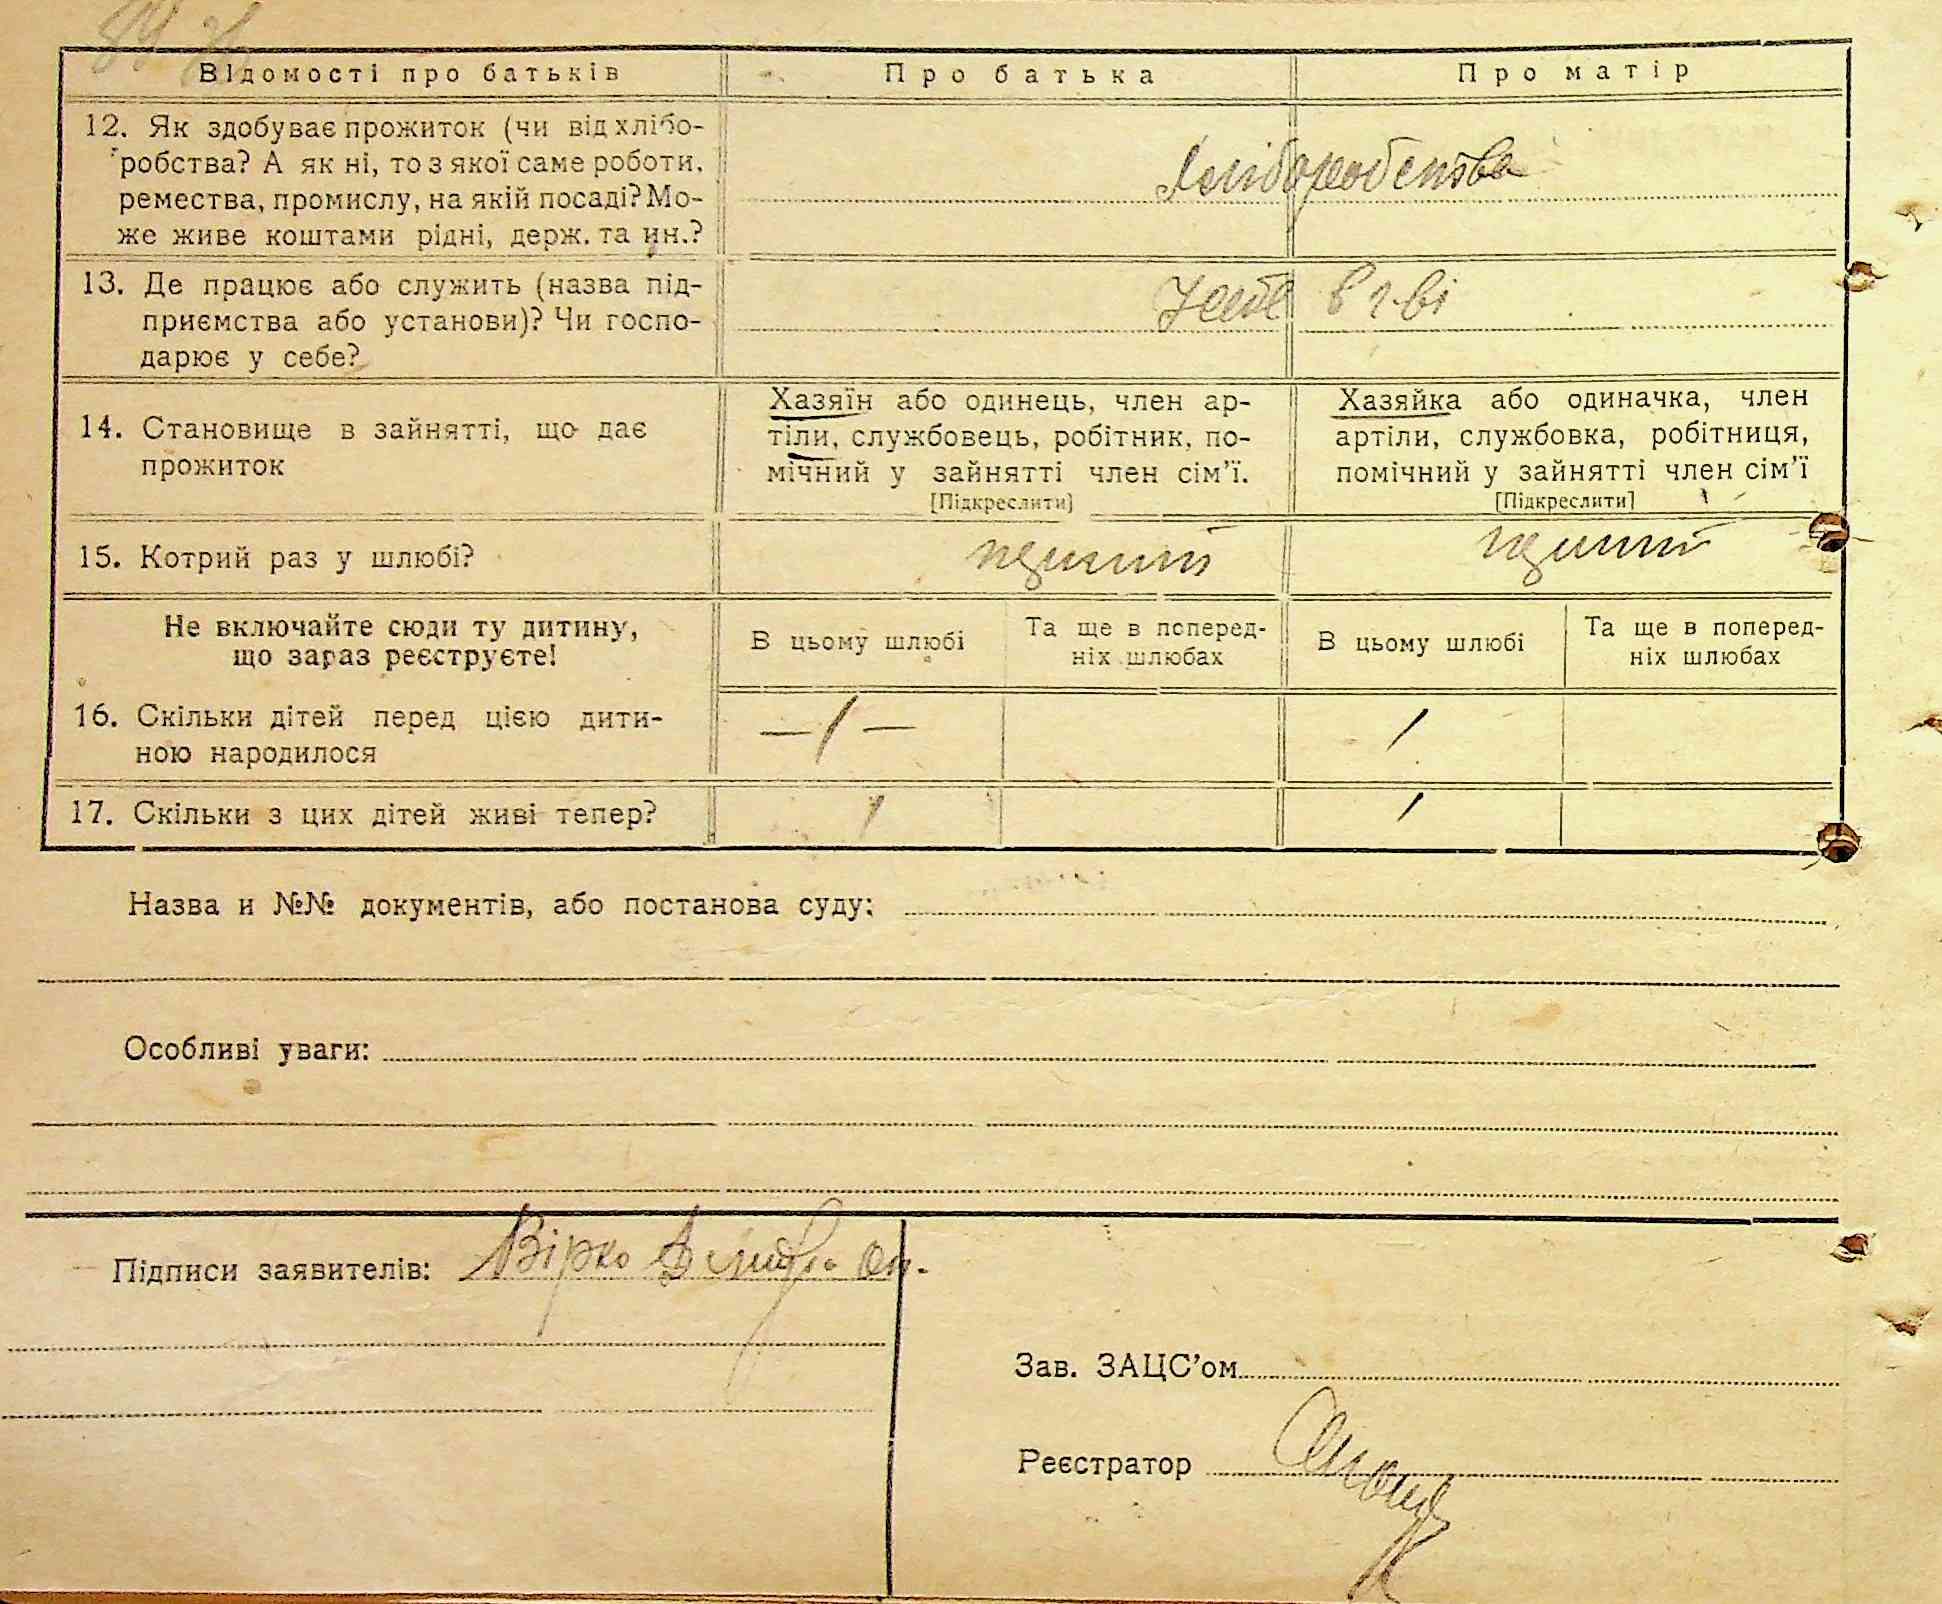 Відомості про батьків
Про батька
Про матір
12. Як здобуває прожиток (чи від хлібо-
робства? А як ні, то з якої саме роботи,
ремества, промислу, на якій посаді? Мо-
же живе коштами рідні, держ. та ин.?
хліборобства
13. Де працює або служить (назва під-
приємства або установи)? Чи госпо-
дарює у себе?
в г-ві
14. Становище в зайнятті, що дає
прожиток
Хазяїн або одинець, член ар-
тіли, службовець, робітник, по-
мічний у зайнятті член сім'ї.
[Підкреслити]
Хазяйка або одиначка, член
артіли, службовка, робітниця,
помічний у зайнятті член сім'ї
[Підкреслити]
15. Котрий раз у шлюбі?
Не включайте сюди ту дитину,
що зараз реєструєте!
В цьому шлюбі
Та ще в поперед-
ніх шлюбах
В цьому шлюбі
Та ще в поперед-
ніх шлюбах
16. Скільки дітей перед цією дити-
ною народилося
—1—
1
17. Скільки з цих дітей живі тепер?
1
1
Назва и №№ документів, або постанова суду:
Особливі уваги:
Підписи заявителів: Вірко
Зав. ЗАЦС'ом
Реєстратор